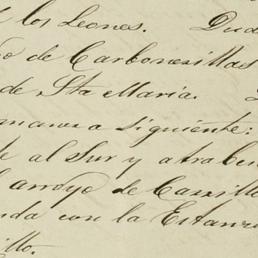 los Leones. Dud
de Carbonerillas
de Sta Maria.
manera siguiente:
al Sur y atrabe
arroyo de Carrillo
con la Estan